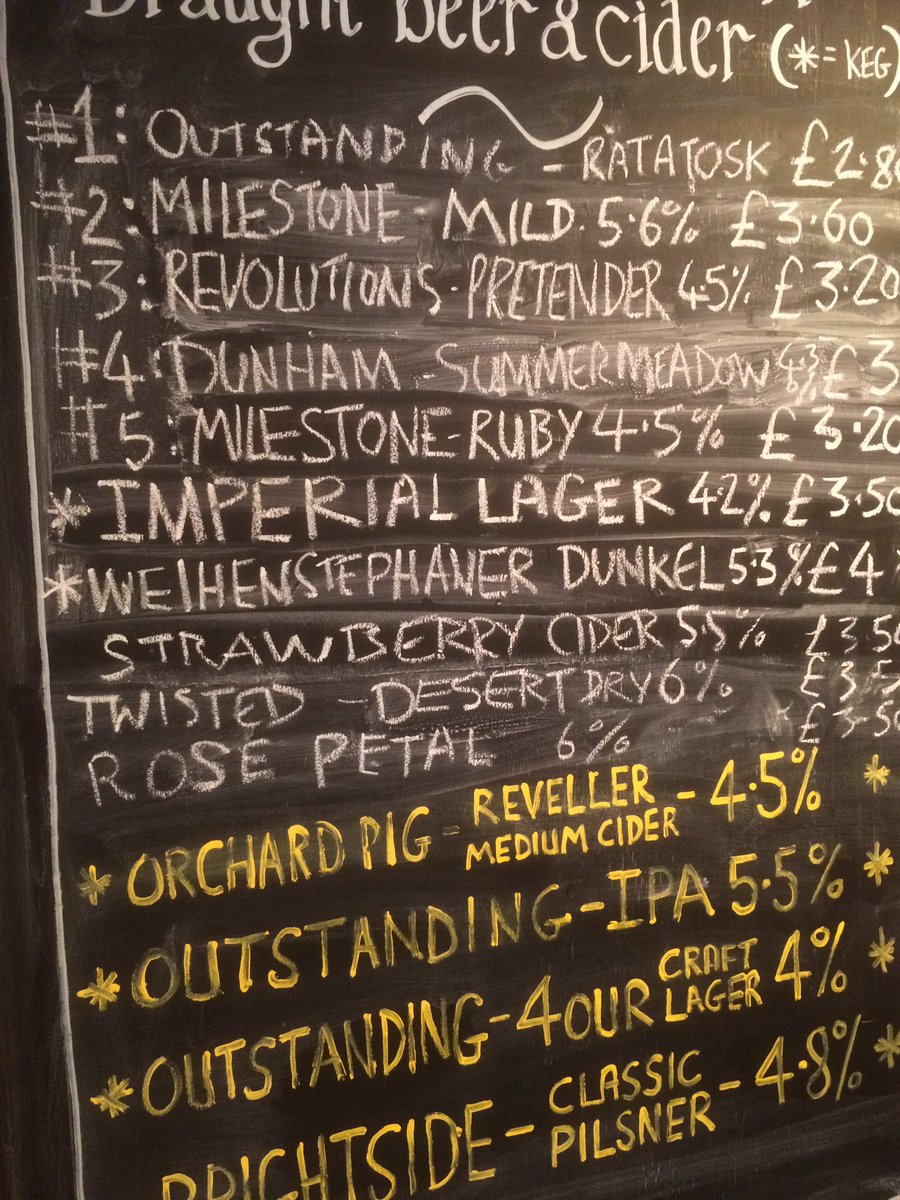 Draught Beer & cider (*= KEG)
#1: OUTSTANDING - RATATOSK £2.80
#2: MILESTONE - MILD. 5.6% £3.60
#3: REVOLUTIONS - PRETENDER 4.5% £3.20
#4: DUNHAM - SUMMER MEADOW £3
#5: MILESTONE - RUBY 4.5% £3.20
* IMPERIAL LAGER 4.2% £3.50
* WEIHENSTEPHANER DUNKEL 5.3% £4
STRAWBERRY CIDER 5.5% £3.50
TWISTED - DESERT DRY 6% £3.5
ROSE PETAL 6% £3.50
* ORCHARD PIG - REVELLER MEDIUM CIDER - 4.5% *
* OUTSTANDING - IPA 5.5% *
* OUTSTANDING - 4OUR CRAFT LAGER 4% *
BRIGHTSIDE - CLASSIC PILSNER - 4.8% *